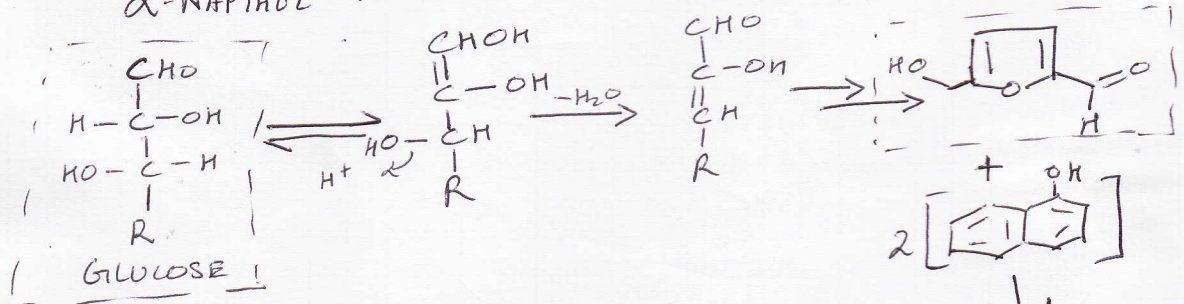 α-NAPTHOL
CHO
H-C-OH
HO-C-H
R
GLUCOSE
H+
CHOH
C-OH
HO-CH
R
-H2O
CHO
C-OH
CH
R
HO
O
O
H
+
2
OH